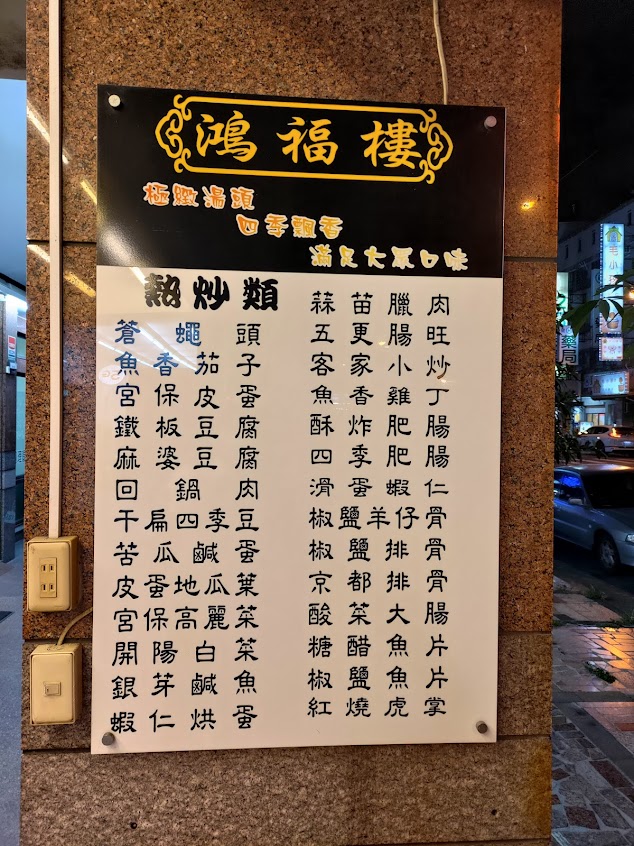 鴻福樓
極緻湯頭
四季飄香
滿足大眾口味
熱炒類
蒼蠅頭
魚香茄子
宮保皮蛋
鐵板豆腐
麻婆豆腐
回鍋肉
干扁四季豆
苦瓜鹹蛋
皮蛋地瓜葉
宮保高麗菜
開陽白菜
銀芽鹹魚
蝦仁烘蛋
蒜苗臘肉
五更腸旺
客家小炒
魚香雞丁
酥炸肥腸
四季肥腸
滑蛋蝦仁
椒鹽羊仔骨
椒鹽排骨
京都排骨
酸菜大腸
糖醋魚片
椒鹽魚片
紅燒虎掌
藥局